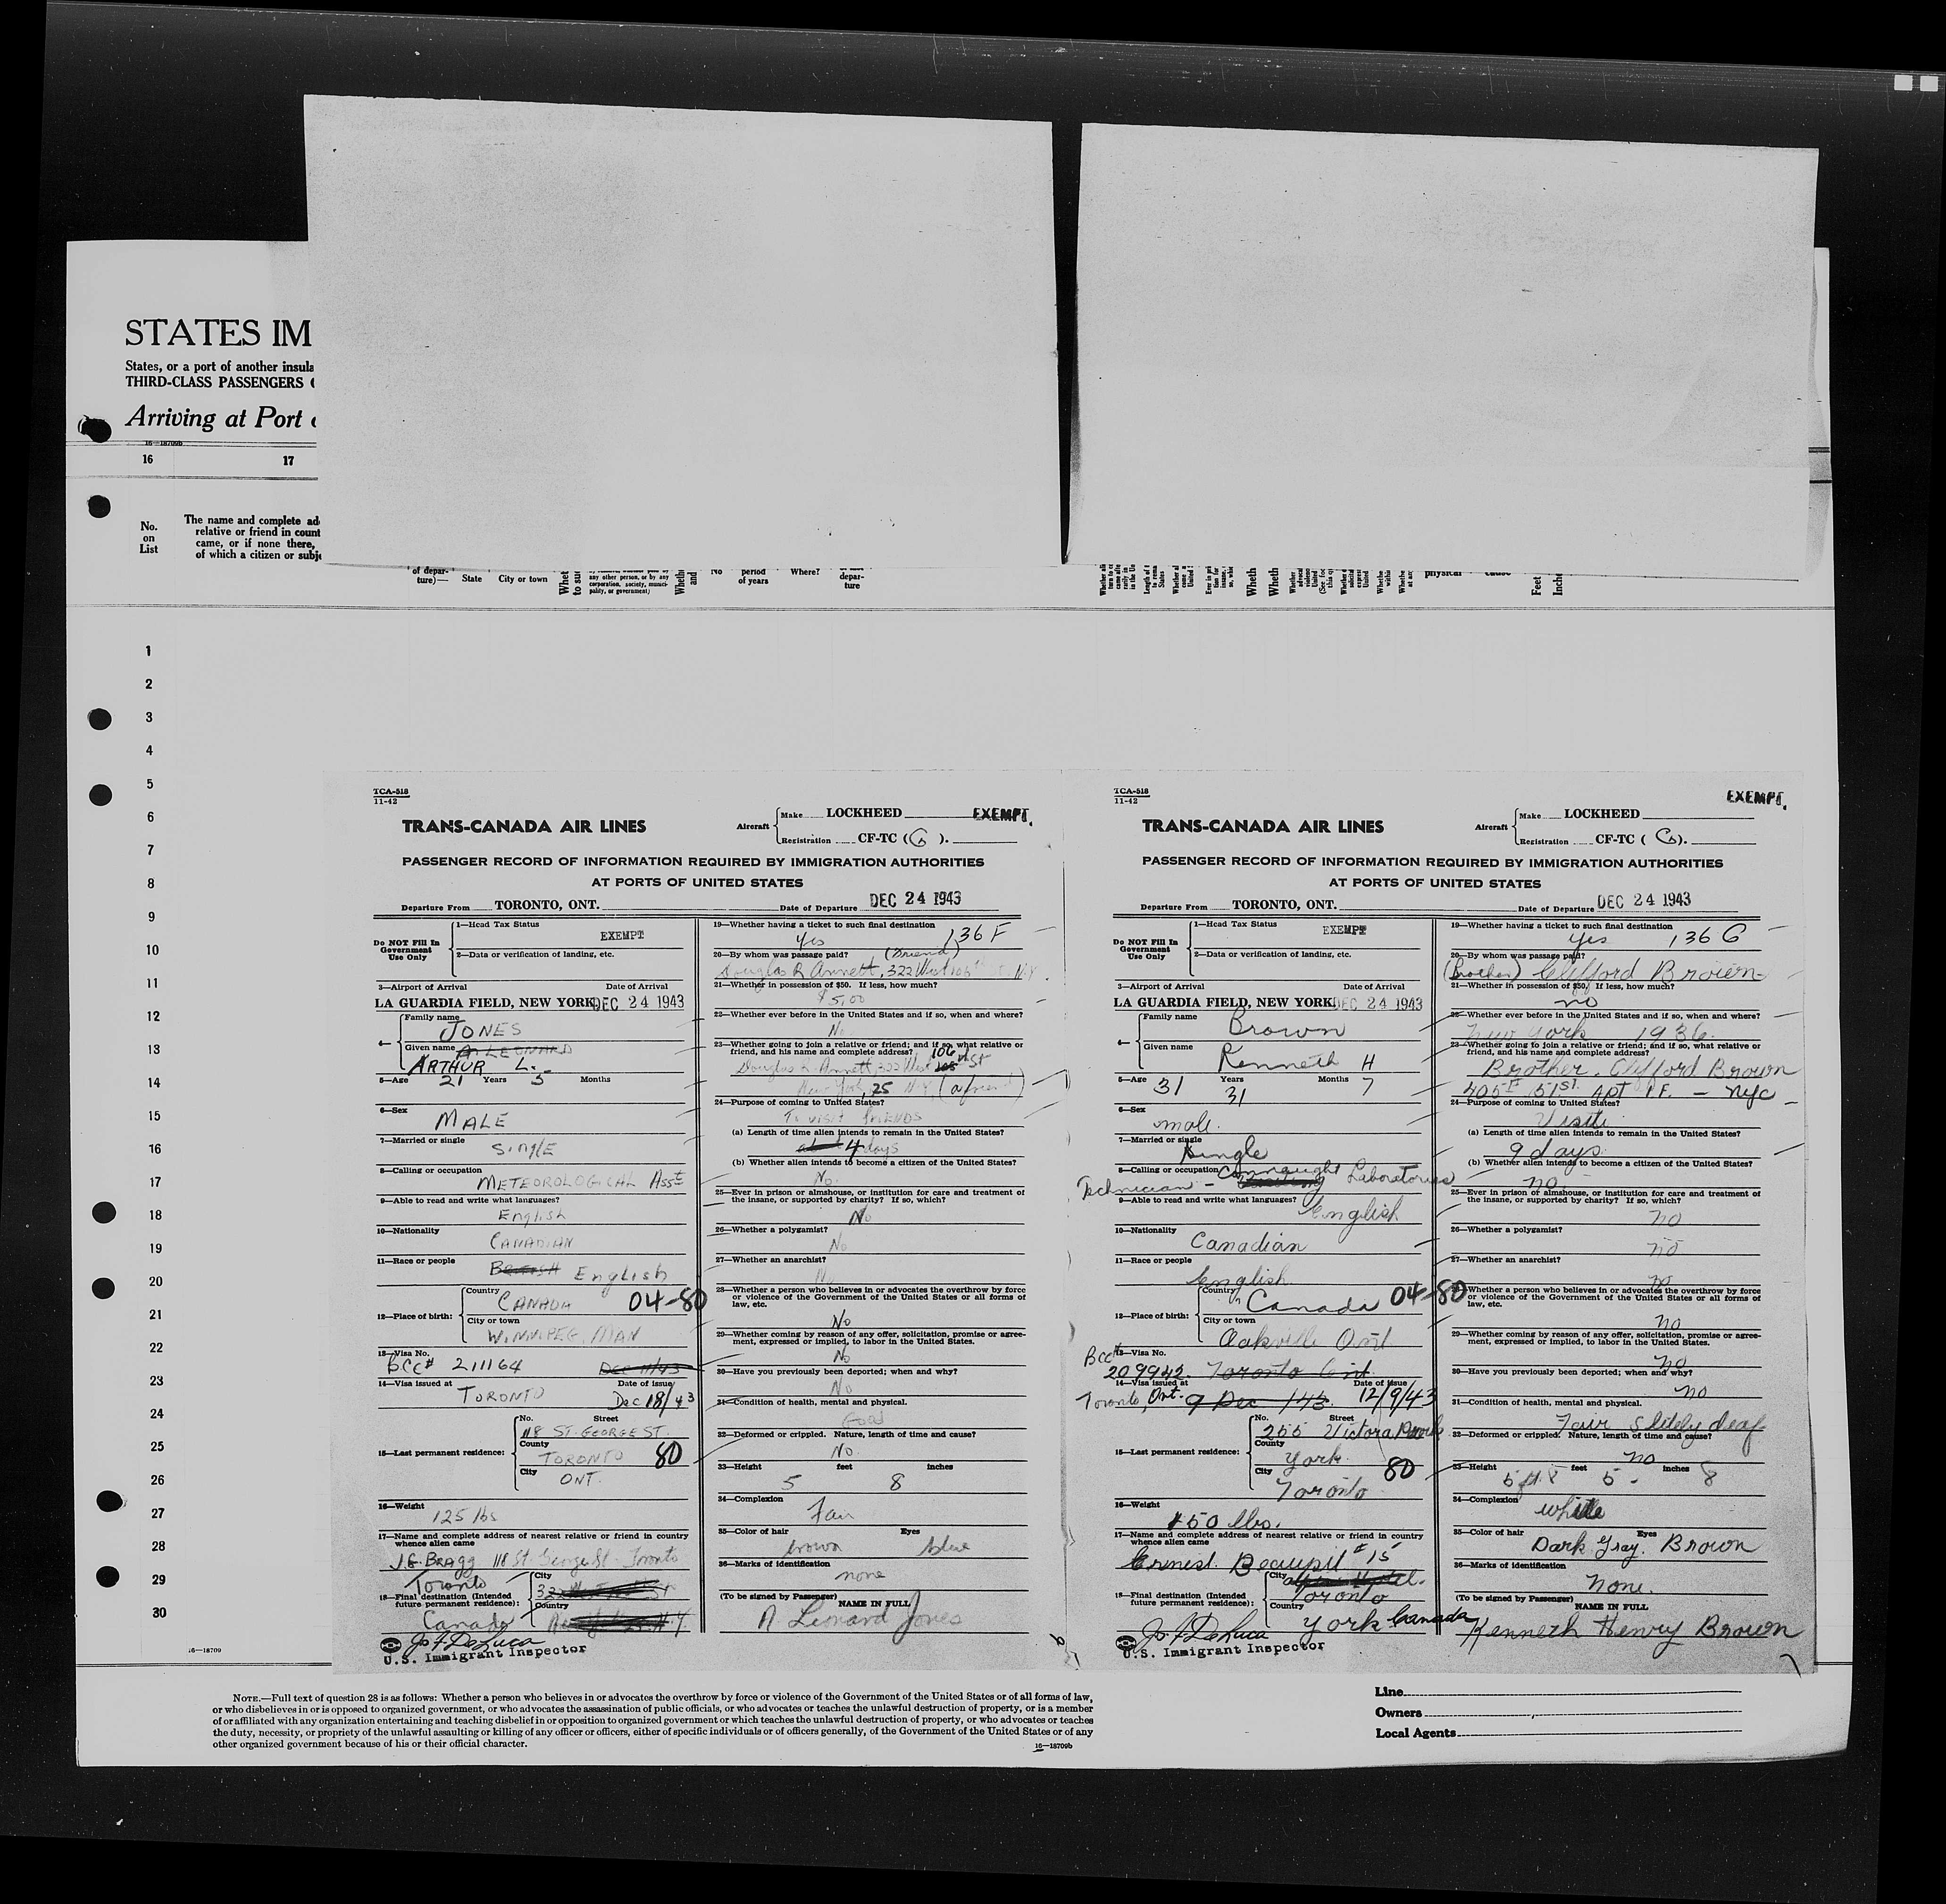 STATES IM
States, or a port of another insula
THIRD-CLASS PASSENGERS
Arriving at Port
16—18709b
16 17
No. on List
The name and complete ad
relative or friend in count
came, or if none there,
of which a citizen or subje
of depar-
ture)— State City or town
any other person, or by any
corporation, society, munici-
pality, or government)
No period
of years
Where?
depar-
ture
physical cause
Feet
Inche
1
2
3
4
5
6
7
8
9
10
11
12
13
14
15
16
17
18
19
20
21
22
23
24
25
26
27
28
29
30
16—18709
TCA-518
11-42
TRANS-CANADA AIR LINES
Aircraft Make LOCKHEED EXEMPT.
Registration CF-TC (G).
PASSENGER RECORD OF INFORMATION REQUIRED BY IMMIGRATION AUTHORITIES
AT PORTS OF UNITED STATES
Departure From TORONTO, ONT. Date of Departure DEC 24 1943
Do NOT Fill In
Government
Use Only
1—Head Tax Status
EXEMPT
2—Data or verification of landing, etc.
3—Airport of Arrival Date of Arrival
LA GUARDIA FIELD, NEW YORK DEC 24 1943
4— Family name
JONES
Given name A. LEONARD
ARTHUR L.
5—Age 21 Years 5 Months
6—Sex
MALE
7—Married or single
SINGLE
8—Calling or occupation
METEOROLOGICAL ASST
9—Able to read and write what languages?
English
10—Nationality
CANADIAN
11—Race or people
BRITISH English
12—Place of birth:
Country
CANADA 04-80
City or town
WINNIPEG, MAN
13—Visa No.
BCC# 211164 DEC 11/43
14—Visa issued at Date of issue
TORONTO Dec 18/43
15—Last permanent residence:
No. Street
118 ST. GEORGE ST.
County
TORONTO 80
City
ONT.
16—Weight
125 lbs
17—Name and complete address of nearest relative or friend in country
whence alien came
J.G. BRAGG 118 St. George St. Toronto
Toronto
18—Final destination (Intended
future permanent residence):
City
Country
Canada
U.S. Immigrant Inspector
19—Whether having a ticket to such final destination
Yes 136 F
20—By whom was passage paid? (Friend)
Douglas R Annett, 322 West 106th St, N.Y.
21—Whether in possession of $50. If less, how much?
$5.00
22—Whether ever before in the United States and if so, when and where?
No
23—Whether going to join a relative or friend; and if so, what relative or
friend, and his name and complete address?
Douglas R. Annett, 322 West 106 St
New York, 25 N.Y. (a friend)
24—Purpose of coming to United States?
To visit FRIENDS
(a) Length of time alien intends to remain in the United States?
4 days
(b) Whether alien intends to become a citizen of the United States?
No.
25—Ever in prison or almshouse, or institution for care and treatment of
the insane, or supported by charity? If so, which?
No
26—Whether a polygamist?
No
27—Whether an anarchist?
No
28—Whether a person who believes in or advocates the overthrow by force
or violence of the Government of the United States or all forms of
law, etc.
No
29—Whether coming by reason of any offer, solicitation, promise or agree-
ment, expressed or implied, to labor in the United States.
No
30—Have you previously been deported; when and why?
No
31—Condition of health, mental and physical.
Good
32—Deformed or crippled. Nature, length of time and cause?
No
33—Height feet inches
5 8
34—Complexion
Fair
35—Color of hair Eyes
brown blue
36—Marks of identification
none
(To be signed by Passenger)
NAME IN FULL
A Leonard Jones
TCA-518
11-42
TRANS-CANADA AIR LINES
Aircraft Make LOCKHEED EXEMPT.
Registration CF-TC (G).
PASSENGER RECORD OF INFORMATION REQUIRED BY IMMIGRATION AUTHORITIES
AT PORTS OF UNITED STATES
Departure From TORONTO, ONT. Date of Departure DEC 24 1943
Do NOT Fill In
Government
Use Only
1—Head Tax Status
EXEMPT
2—Data or verification of landing, etc.
3—Airport of Arrival Date of Arrival
LA GUARDIA FIELD, NEW YORK DEC 24 1943
4— Family name
Brown
Given name
Kenneth H
5—Age 31 Years Months 7
31
6—Sex
male.
7—Married or single
Single
8—Calling or occupation Connaught Laboratories
Technician -
9—Able to read and write what languages?
English
10—Nationality
Canadian
11—Race or people
English
12—Place of birth:
Country
Canada 04-80
City or town
Oakville Ont
13—Visa No.
BCC#
209942. Toronto Ont.
14—Visa issued at Date of issue
Toronto, Ont. 9 Dec /43. 12/9/43
15—Last permanent residence:
No. Street
255 Victoria
County
York
City 80
Toronto
16—Weight
150 lbs.
17—Name and complete address of nearest relative or friend in country
whence alien came
Ernest # 15
18—Final destination (Intended
future permanent residence):
City
Toronto
Country
York Canada
U.S. Immigrant Inspector
19—Whether having a ticket to such final destination
Yes 136 G
20—By whom was passage paid?
(Brother) Clifford Brown
21—Whether in possession of $50. If less, how much?
no
22—Whether ever before in the United States and if so, when and where?
New York 1936.
23—Whether going to join a relative or friend; and if so, what relative or
friend, and his name and complete address?
Brother, Clifford Brown
405 E 51st. Apt 1.F. - NYC
24—Purpose of coming to United States?
Visit
(a) Length of time alien intends to remain in the United States?
9 days
(b) Whether alien intends to become a citizen of the United States?
no
25—Ever in prison or almshouse, or institution for care and treatment of
the insane, or supported by charity? If so, which?
no
26—Whether a polygamist?
no
27—Whether an anarchist?
no
28—Whether a person who believes in or advocates the overthrow by force
or violence of the Government of the United States or all forms of
law, etc.
no
29—Whether coming by reason of any offer, solicitation, promise or agree-
ment, expressed or implied, to labor in the United States.
no
30—Have you previously been deported; when and why?
no
31—Condition of health, mental and physical.
deaf
32—Deformed or crippled. Nature, length of time and cause?
no
33—Height feet inches
5 8
34—Complexion
white
35—Color of hair Eyes
Dark Gray. Brown
36—Marks of identification
None.
(To be signed by Passenger)
NAME IN FULL
Kenneth Henry Brown
NOTE.—Full text of question 28 is as follows: Whether a person who believes in or advocates the overthrow by force or violence of the Government of the United States or of all forms of law,
or who disbelieves in or is opposed to organized government, or who advocates the assassination of public officials, or who advocates or teaches the unlawful destruction of property, or is a member
of or affiliated with any organization entertaining and teaching disbelief in or opposition to organized government or which teaches the unlawful destruction of property, or who advocates or teaches
the duty, necessity, or propriety of the unlawful assaulting or killing of any officer or officers, either of specific individuals or of officers generally, of the Government of the United States or of any
other organized government because of his or their official character.
16—18709b
Line
Owners
Local Agents